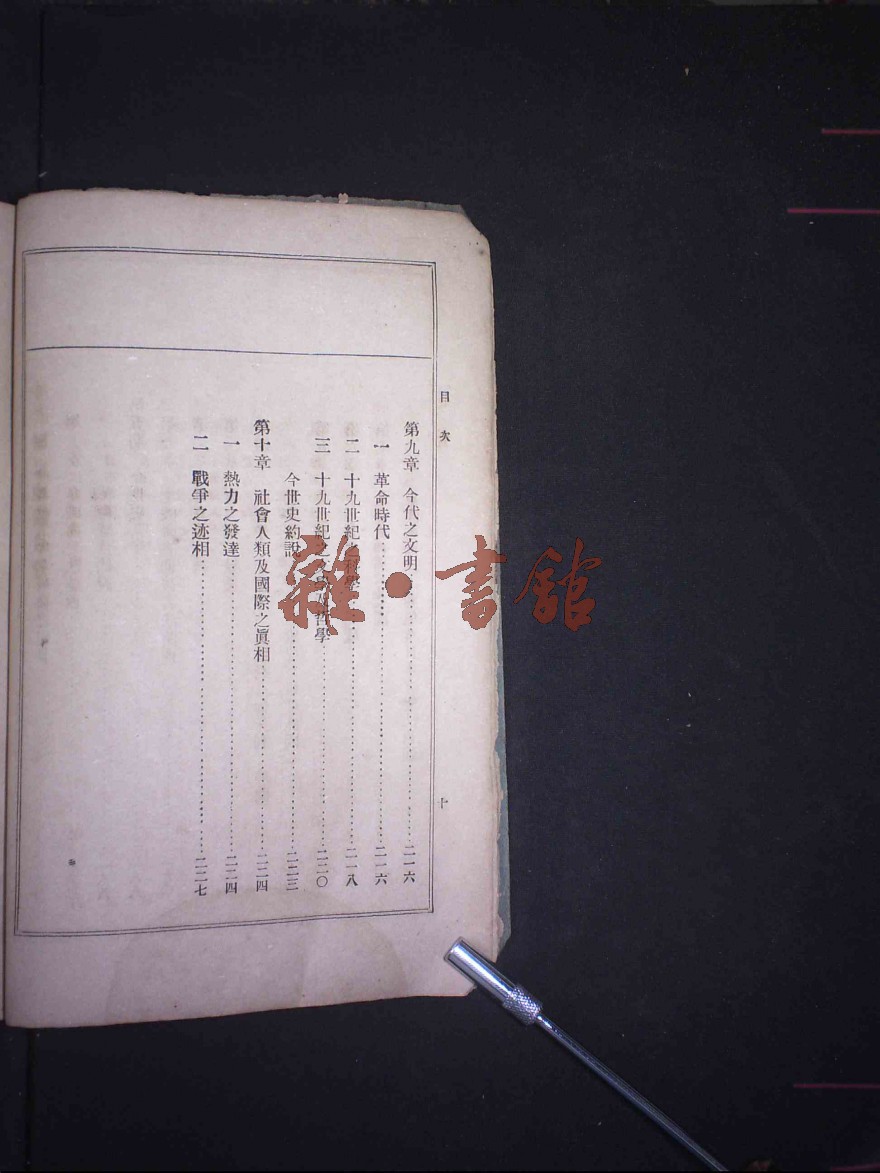 目次
第九章 今代之文明……二一六
一 革命時代……二一六
二 十九世紀之科學……二一八
三 十九世紀之文學及哲學……二二〇
今世史約說……二二三
第十章 社會人類及國際之眞相……二二四
一 熱力之發達……二二四
二 戰爭之迹相……二二七
十
雜·書館